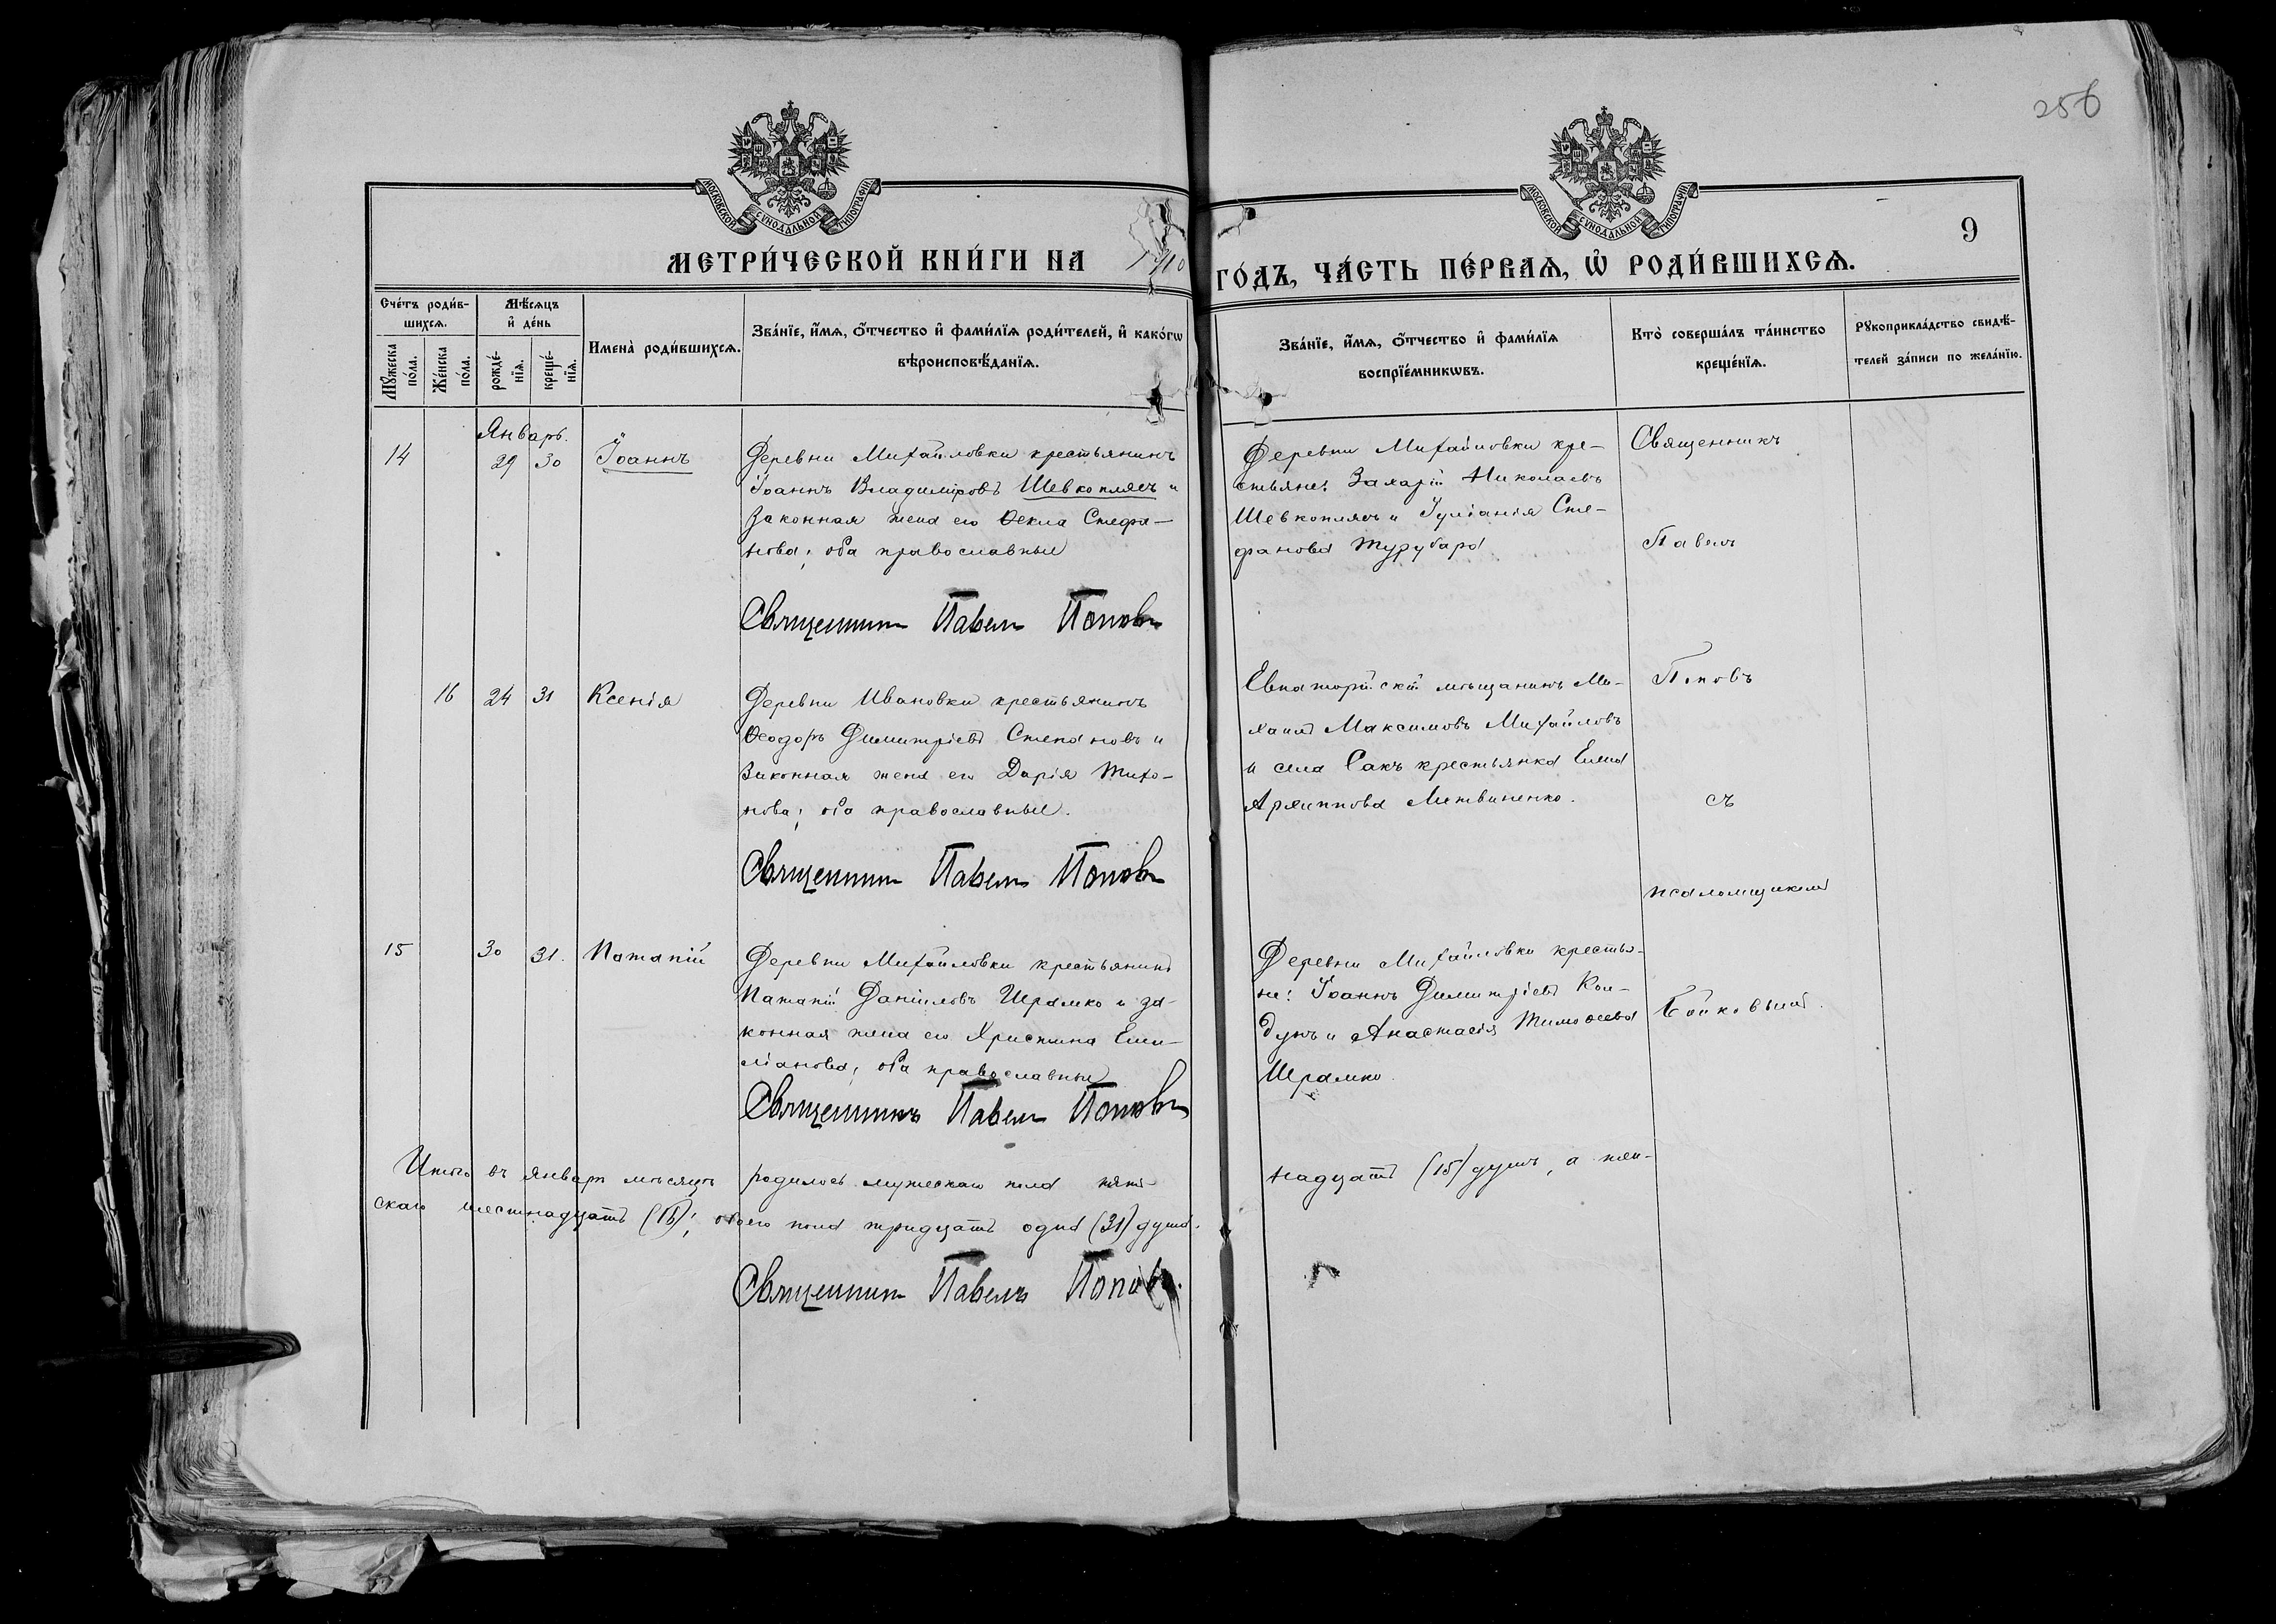 256
МОСКОВСКОЙ СѴНОДАЛЬНОЙ ТИПОГРАФІИ
МОСКОВСКОЙ СѴНОДАЛЬНОЙ ТИПОГРАФІИ
9
МЕТРИ́ЧЕСКОЙ КНИ́ГИ НА 1910 ГО́ДЪ, ЧА́СТЬ ПЕ́РВАѦ, Ѡ҆ РОДИ́ВШИХСѦ.
Сче́тъ роди́в-
шихсѧ.
Мꙋ́жеска по́ла.
Же́нска по́ла.
Мѣ́сѧцъ
и҆ де́нь
рожде́-
нїѧ.
креще́-
нїѧ.
Имена̀ роди́вшихсѧ.
Зва́нїе, и҆́мѧ, ѻ҆́тчество и҆ фами́лїѧ роди́телей, и҆ како́гѡ
вѣроисповѣ́данїѧ.
Зва́нїе, и҆́мѧ, ѻ҆́тчество и҆ фами́лїѧ
воспрїе́мникѡвъ.
Кто̀ соверша́лъ та́инство
креще́нїѧ.
Рꙋкоприкла́дство свидѣ́-
телей за́писи по жела́нїю.
Январь.
14 29 30 Іоаннъ
Деревни Михайловки крестьянинъ
Іоаннъ Владиміровъ Шевкоплясъ и
законная жена его Ѳекла Стефа-
нова; оба православные
Священникъ Павелъ Поповъ
Деревни Михайловки кре-
стьяне: Захарій Николаевъ
Шевкоплясъ и Іуліанія Сте-
фанова
Священникъ
Павелъ
16 24 31 Ксенія
Деревни Ивановки крестьянинъ
Ѳеодоръ Димитріевъ Степановъ и
законная жена его Дарія Тихо-
нова; оба православные.
Священникъ Павелъ Поповъ
Евпаторійскій мѣщанинъ Ми-
хаилъ Максимовъ Михайловъ
и села Сакъ крестьянка Елена
Архиппова Литвиненко.
Поповъ
съ
псаломщикомъ
15 30 31. Патапій
Деревни Михайловки крестьянинъ
Патапій Даніиловъ Шрамко и за-
конная жена его Христина Еми-
ліанова; оба православные
Священникъ Павелъ Поповъ
Деревни Михайловки крестья-
не: Іоаннъ Димитріевъ Кол-
дунъ и Анастасія Тимоѳеева
Шрамко.
Бойковымъ.
Итого въ январѣ мѣсяцѣ родилось мужескаго пола пят-
надцать (15) душъ, а жен-
скаго шестнадцать (16); обоего пола тридцать одна (31) душа.
Священникъ Павелъ Поповъ.